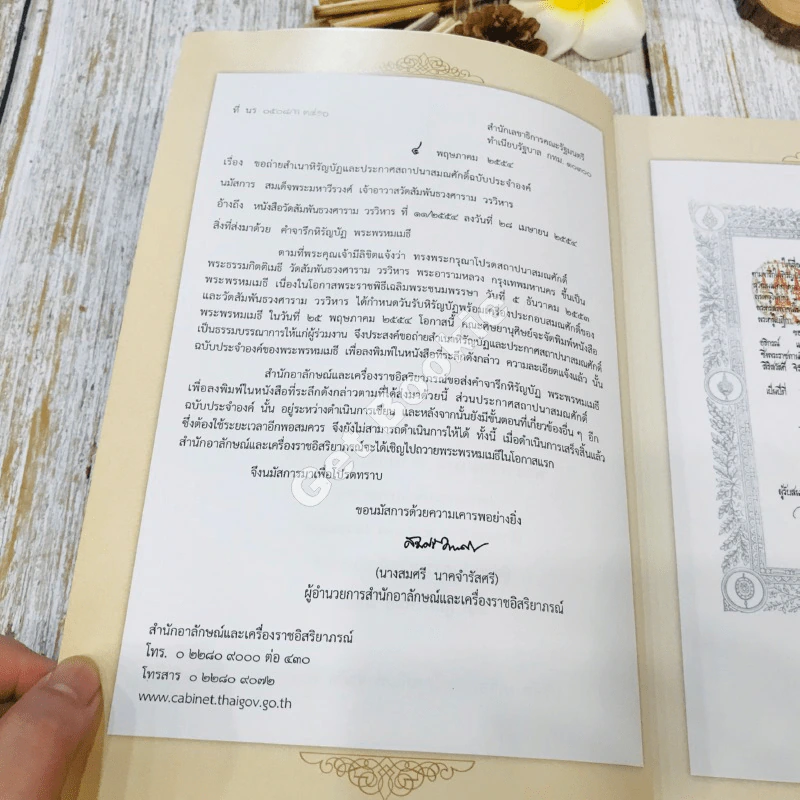 ที่ นร
สำนักเลขาธิการคณะรัฐมนตรี
ทำเนียบรัฐบาล กทม. ๑๐๓๐๐
๔ พฤษภาคม ๒๕๕๔
เรื่อง ขอถ่ายสำเนาหิรัญบัฏและประกาศสถาปนาสมณศักดิ์ฉบับประจำองค์
นมัสการ สมเด็จพระมหาวีรวงศ์ เจ้าอาวาสวัดสัมพันธวงศาราม วรวิหาร
อ้างถึง หนังสือวัดสัมพันธวงศาราม วรวิหาร ที่ ๑๑/๒๕๕๔ ลงวันที่ ๒๘ เมษายน ๒๕๕๔
สิ่งที่ส่งมาด้วย คำจารึกหิรัญบัฏ พระพรหมเมธี
ตามที่พระคุณเจ้ามีลิขิตแจ้งว่า ทรงพระกรุณาโปรดสถาปนาสมณศักดิ์
พระธรรมกิตติเมธี วัดสัมพันธวงศาราม วรวิหาร พระอารามหลวง กรุงเทพมหานคร ขึ้นเป็น
พระพรหมเมธี เนื่องในโอกาสพระราชพิธีเฉลิมพระชนมพรรษา วันที่ ๕ ธันวาคม ๒๕๕๓
และวัดสัมพันธวงศาราม วรวิหาร ได้กำหนดวันรับหิรัญบัฏพร้อมเครื่องประกอบสมณศักดิ์ของ
พระพรหมเมธี ในวันที่ ๒๕ พฤษภาคม ๒๕๕๔ โอกาสนี้ คณะศิษยานุศิษย์จะจัดพิมพ์หนังสือ
เป็นธรรมบรรณาการให้แก่ผู้ร่วมงาน จึงประสงค์ขอถ่ายสำเนาหิรัญบัฏและประกาศสถาปนาสมณศักดิ์
ฉบับประจำองค์ของพระพรหมเมธี เพื่อลงพิมพ์ในหนังสือที่ระลึกดังกล่าว ความละเอียดแจ้งแล้ว นั้น
สำนักอาลักษณ์และเครื่องราชอิสริยาภรณ์ขอส่งคำจารึกหิรัญบัฏ พระพรหมเมธี
เพื่อลงพิมพ์ในหนังสือที่ระลึกดังกล่าวตามที่ได้ส่งมาด้วยนี้ ส่วนประกาศสถาปนาสมณศักดิ์
ฉบับประจำองค์ นั้น อยู่ระหว่างดำเนินการเขียน และหลังจากนั้นยังมีขั้นตอนที่เกี่ยวข้องอื่น ๆ อีก
ซึ่งต้องใช้ระยะเวลาอีกพอสมควร จึงยังไม่สามารถดำเนินการให้ได้ ทั้งนี้ เมื่อดำเนินการเสร็จสิ้นแล้ว
สำนักอาลักษณ์และเครื่องราชอิสริยาภรณ์จะได้เชิญไปถวายพระพรหมเมธีในโอกาสแรก
จึงนมัสการมาเพื่อโปรดทราบ
ขอนมัสการด้วยความเคารพอย่างยิ่ง
(นางสมศรี นาคจำรัสศรี)
ผู้อำนวยการสำนักอาลักษณ์และเครื่องราชอิสริยาภรณ์
สำนักอาลักษณ์และเครื่องราชอิสริยาภรณ์
โทร. ๐ ๒๒๘๐ ๙๐๐๐ ต่อ ๔๓๐
โทรสาร ๐ ๒๒๘๐ ๙๐๗๒
www.cabinet.thaigov.go.th